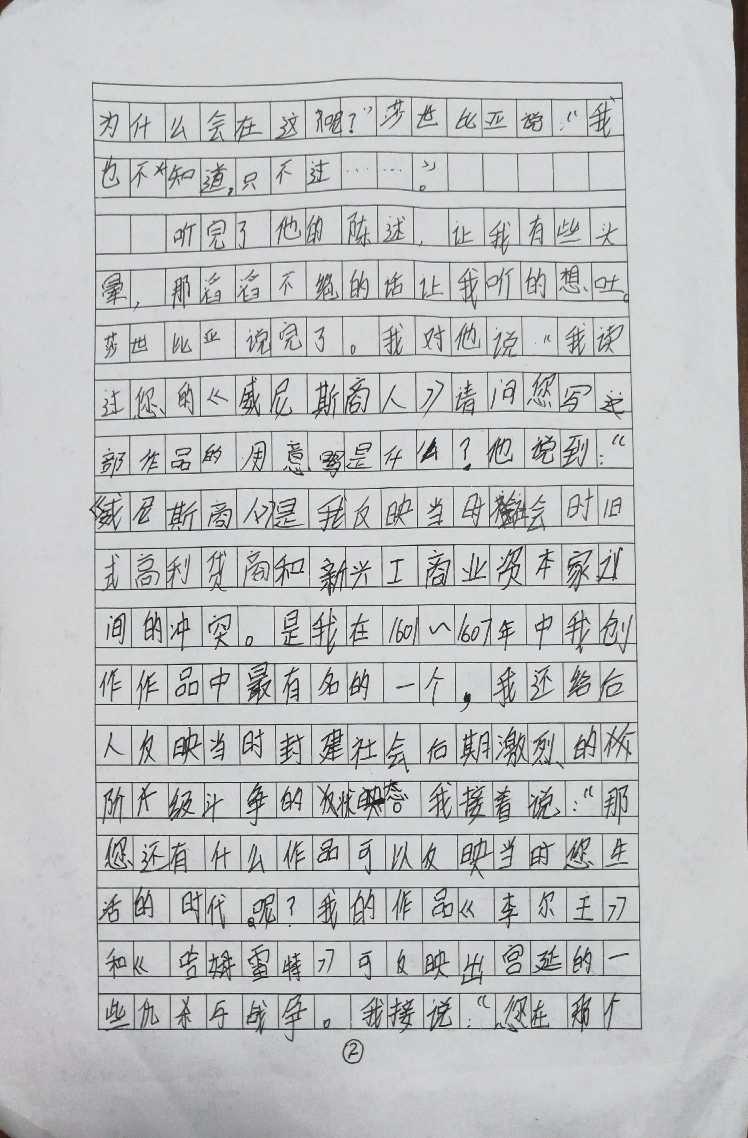 为什么会在这呢？”莎世比亚说：“我
也不知道，只不过……。”
听完了他的陈述，让我有些头
晕，那滔滔不绝的话让我听的想吐。
莎世比亚说完了。我对他说“我读
过您的《威尼斯商人》请问您写这
部作品的用意是什么？他说到：“
《威尼斯商人》是我反映当时社会时旧
式高利货商和新兴工商业资本家之
间的冲突。是我在1601～1607年中我创
作作品中最有名的一个，我还给后
人反映当时封建社会后期激烈的
阶级斗争的状态 我接着说：“那
您还有什么作品可以反映当时您生
活的时代呢？我的作品《李尔王》
和《哈姆雷特》可反映出宫延的一
些仇杀与战争。我接说：“您在那个
②